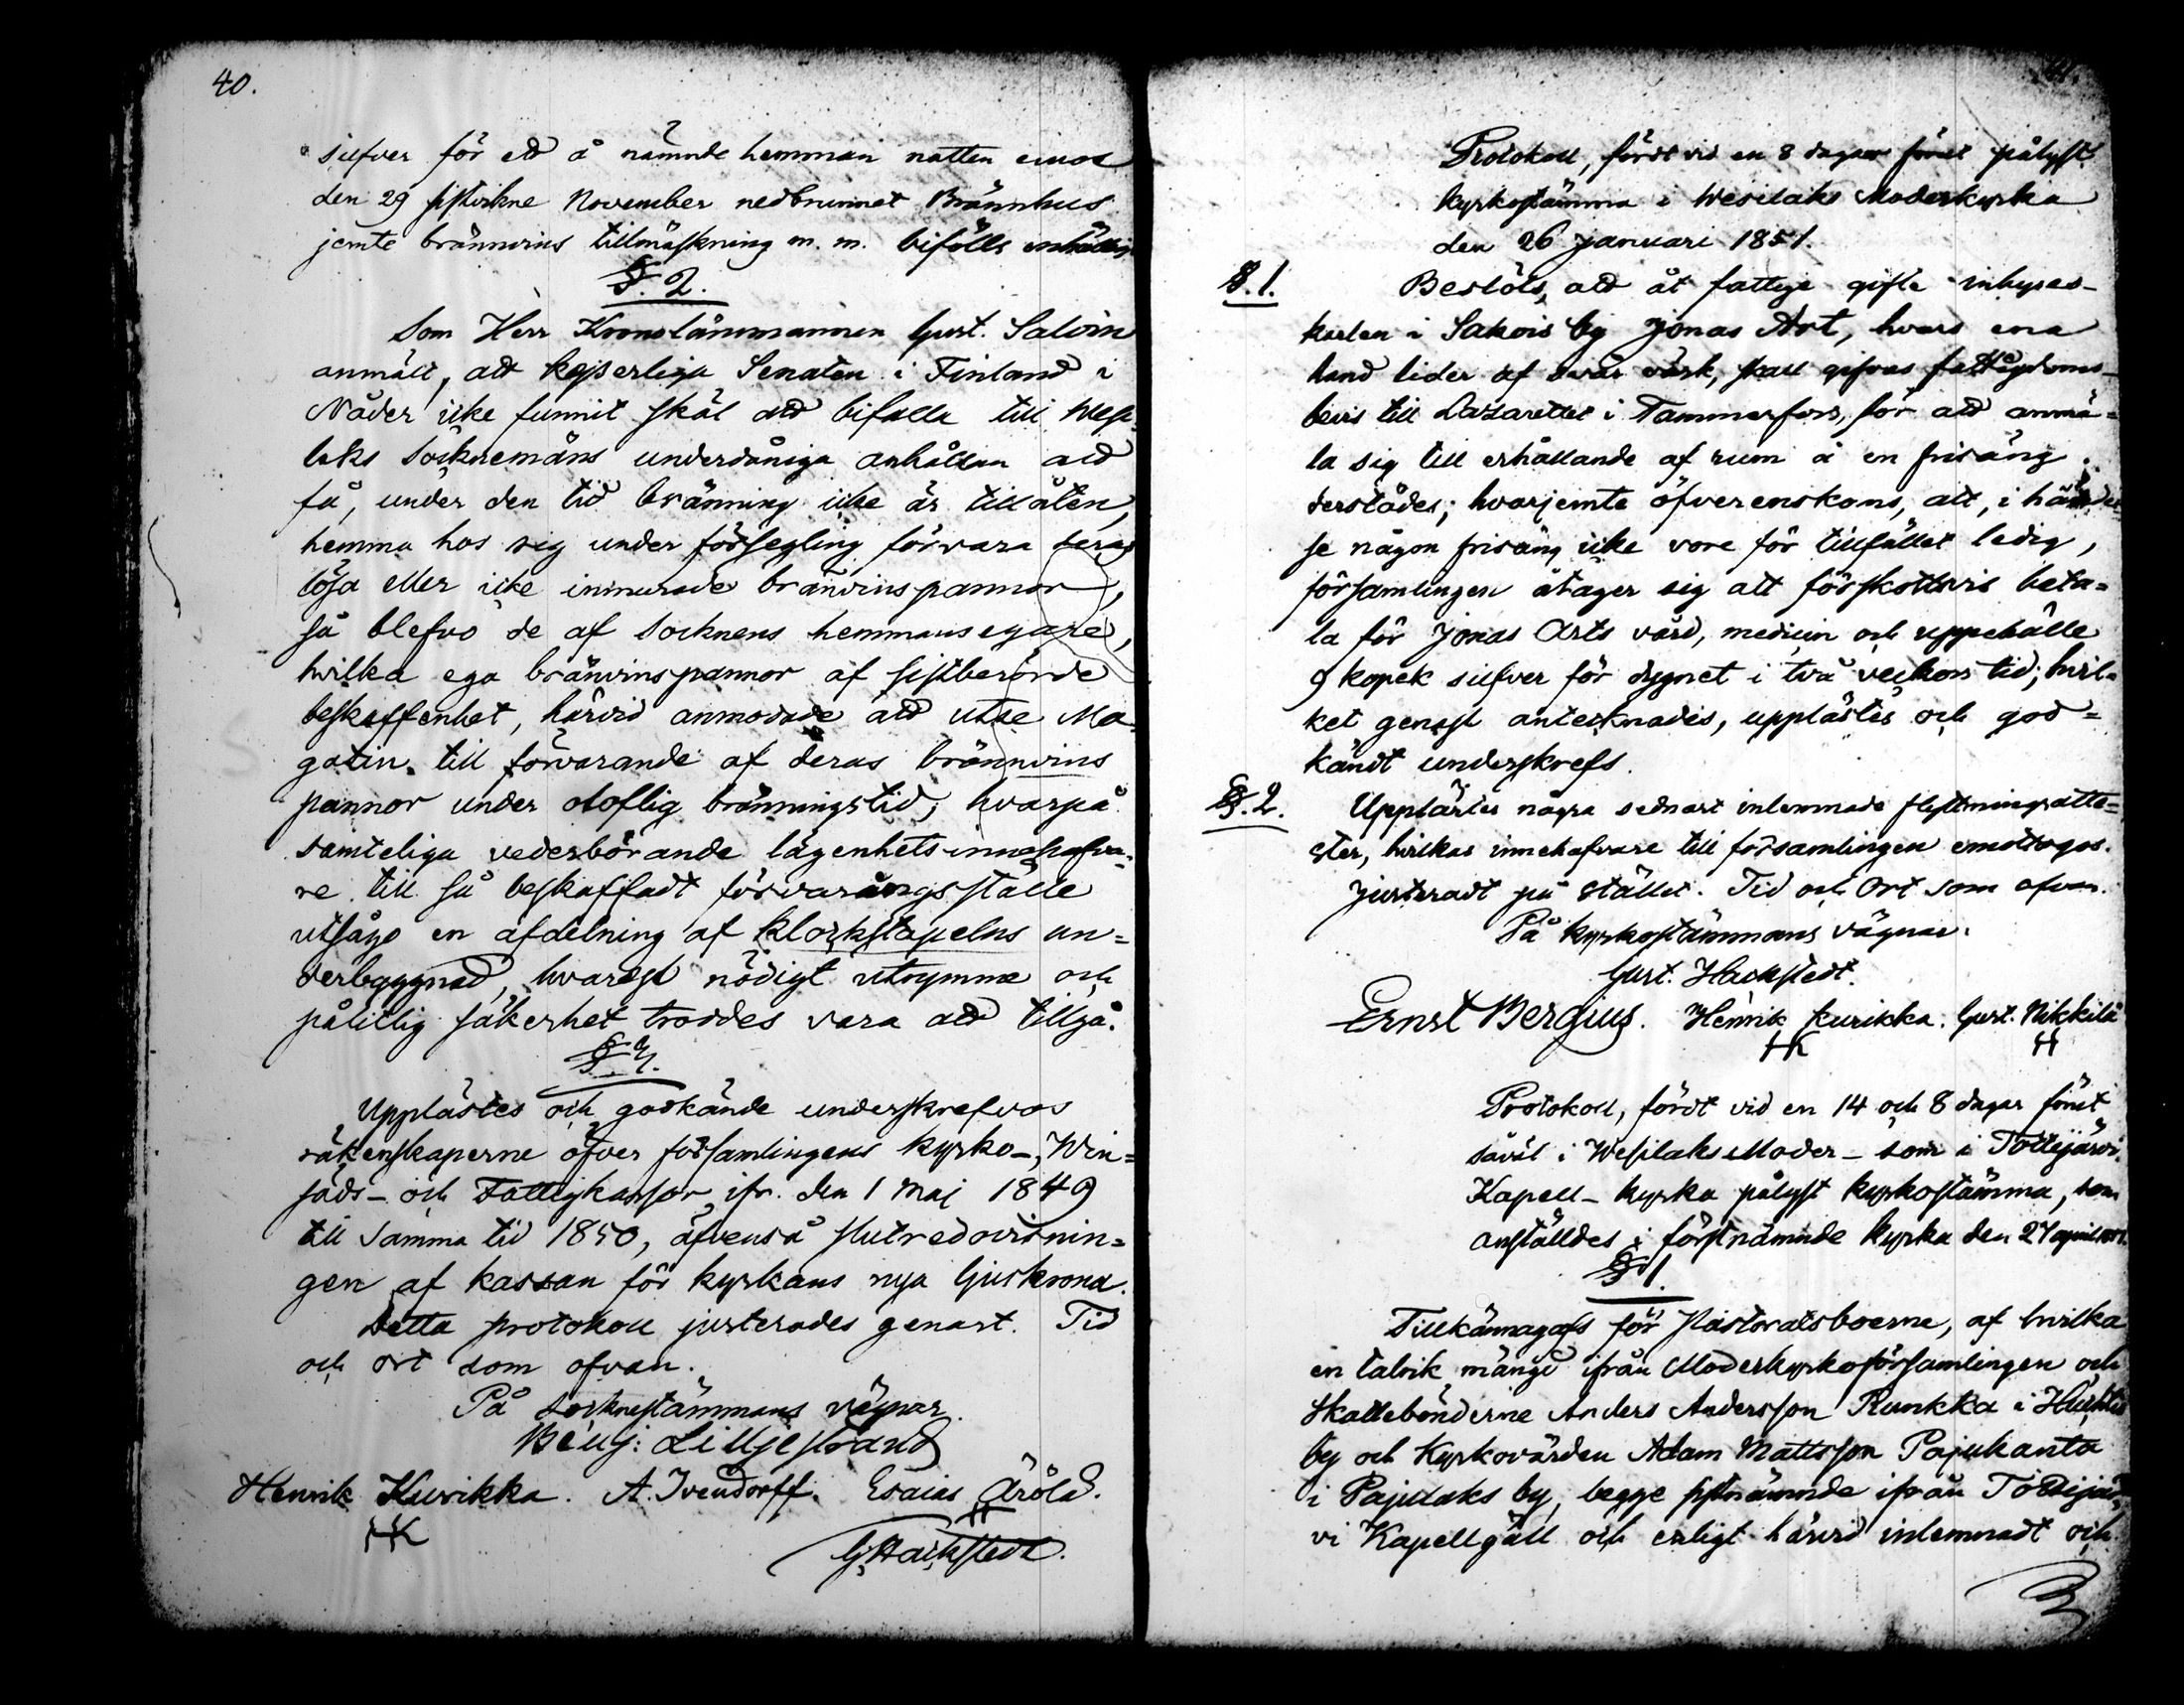 40.
silfver för ett å nämnde hemman natten emot
den 29 sistvikne November nedbrunnet Brännhus
jemte brännvins tillmäskning m. m. bifölls enhälligt
§. 2.
Som Herr Kronolänsmannen Gust. Salvin
anmält, att kejserliga Senaten i Finland i
Nåder icke funnit skäl att bifalla till Wesi-
laks Socknemäns underdåniga anhållan att
få, under den tid bränning icke är tillåten,
hemma hos sig under försegling förvara deras
lösa eller icke inmurade bränvinspannor,
så blefvo de af Socknens hemmansegare,
hvilka ega bränvinspannor af sistberörde
beskaffenhet, härvid anmodade att utse Ma-
gatin till förvarande af deras brännvins
pannor under oloflig bränningstid; hvarpå
samteliga vederbörande lägenhetsinnehafva-
re till så beskaffadt förvaringsställe
utsågo en afdelning af klockstapelns un=
derbyggnad, hvarest nödigt utrymme och
pålitlig säkerhet troddes vara att tillgå.
§. 3.
Upplästes och godkände underskrefvos
räkenskaperne öfver församlingens kyrko-, Win=
säds- och Fattigkassor ifr. den 1 Maj 1849
till samma tid 1850, äfvenså slutredovisnin=
gen af kassan för kyrkans nya ljuskrona.
Detta protokoll justerades genast. Tid
och ort som ofvan.
På Sockenstämmans vägnar
Benj: Liljestrand
Henrik Kurikka. A. Ivendorff. Esaias Ärölä.
HK
G. Hackstedt.
41.
Protokoll, fördt vid en 8 dagar förut pålyst
kyrkostämma i Wesilaks Moderkyrka
den 26 Januari 1851.
§. 1.
Beslöts, att åt fattige gifte inhyses-
karlen i Sakois by Jonas Art, hvars ena
hand lider af svår värk, skall gifvas fattigdoms-
bevis till Lazarettet i Tammerfors, för att anmä=
la sig till erhållande af rum å en frisäng
derstädes; hvarjemte öfverenskoms, att, i händel-
se någon frisäng icke vore för tillfället ledig,
församlingen åtager sig att förskottsvis beta=
la för Jonas Arts vård, medicin och uppehälle
9 kopek silfver för dygnet i två veckors tid; hvil=
ket genast antecknades, upplästes och god=
kändt underskrefs.
§. 2.
Upplästes några sednast inlemnade flyttningsatte=
ster, hvilkas innehafvare till församlingen emottogos.
Justeradt på stället. Tid och Ort som ofvan.
På kyrkostämmans vägnar.
Gust. Hackstedt.
Ernst Bergius. Henrik Kurikka. Gust. Nikkilä
HK
Protokoll, fördt vid en 14 och 8 dagar förut
såväl i Wesilaks Moder- som i Tottijärvi
Kapell-kyrka pålyst kyrkostämma, som
anställdes i förstnämnde kyrka den 27 april 1851.
§ 1.
Tillkännagafs för Pastoratsboerne, af hvilka
en talrik mängd ifrån Moderkyrkoförsamlingen och
Skattebönderne Anders Andersson Runkka i Huhtis
by och Kyrkovärden Adam Mattsson Pajukanta
i Pajulaks by, begge sistnämnde ifrån Tottijär-
vi Kapellgäll och enligt härvid inlemnadt och